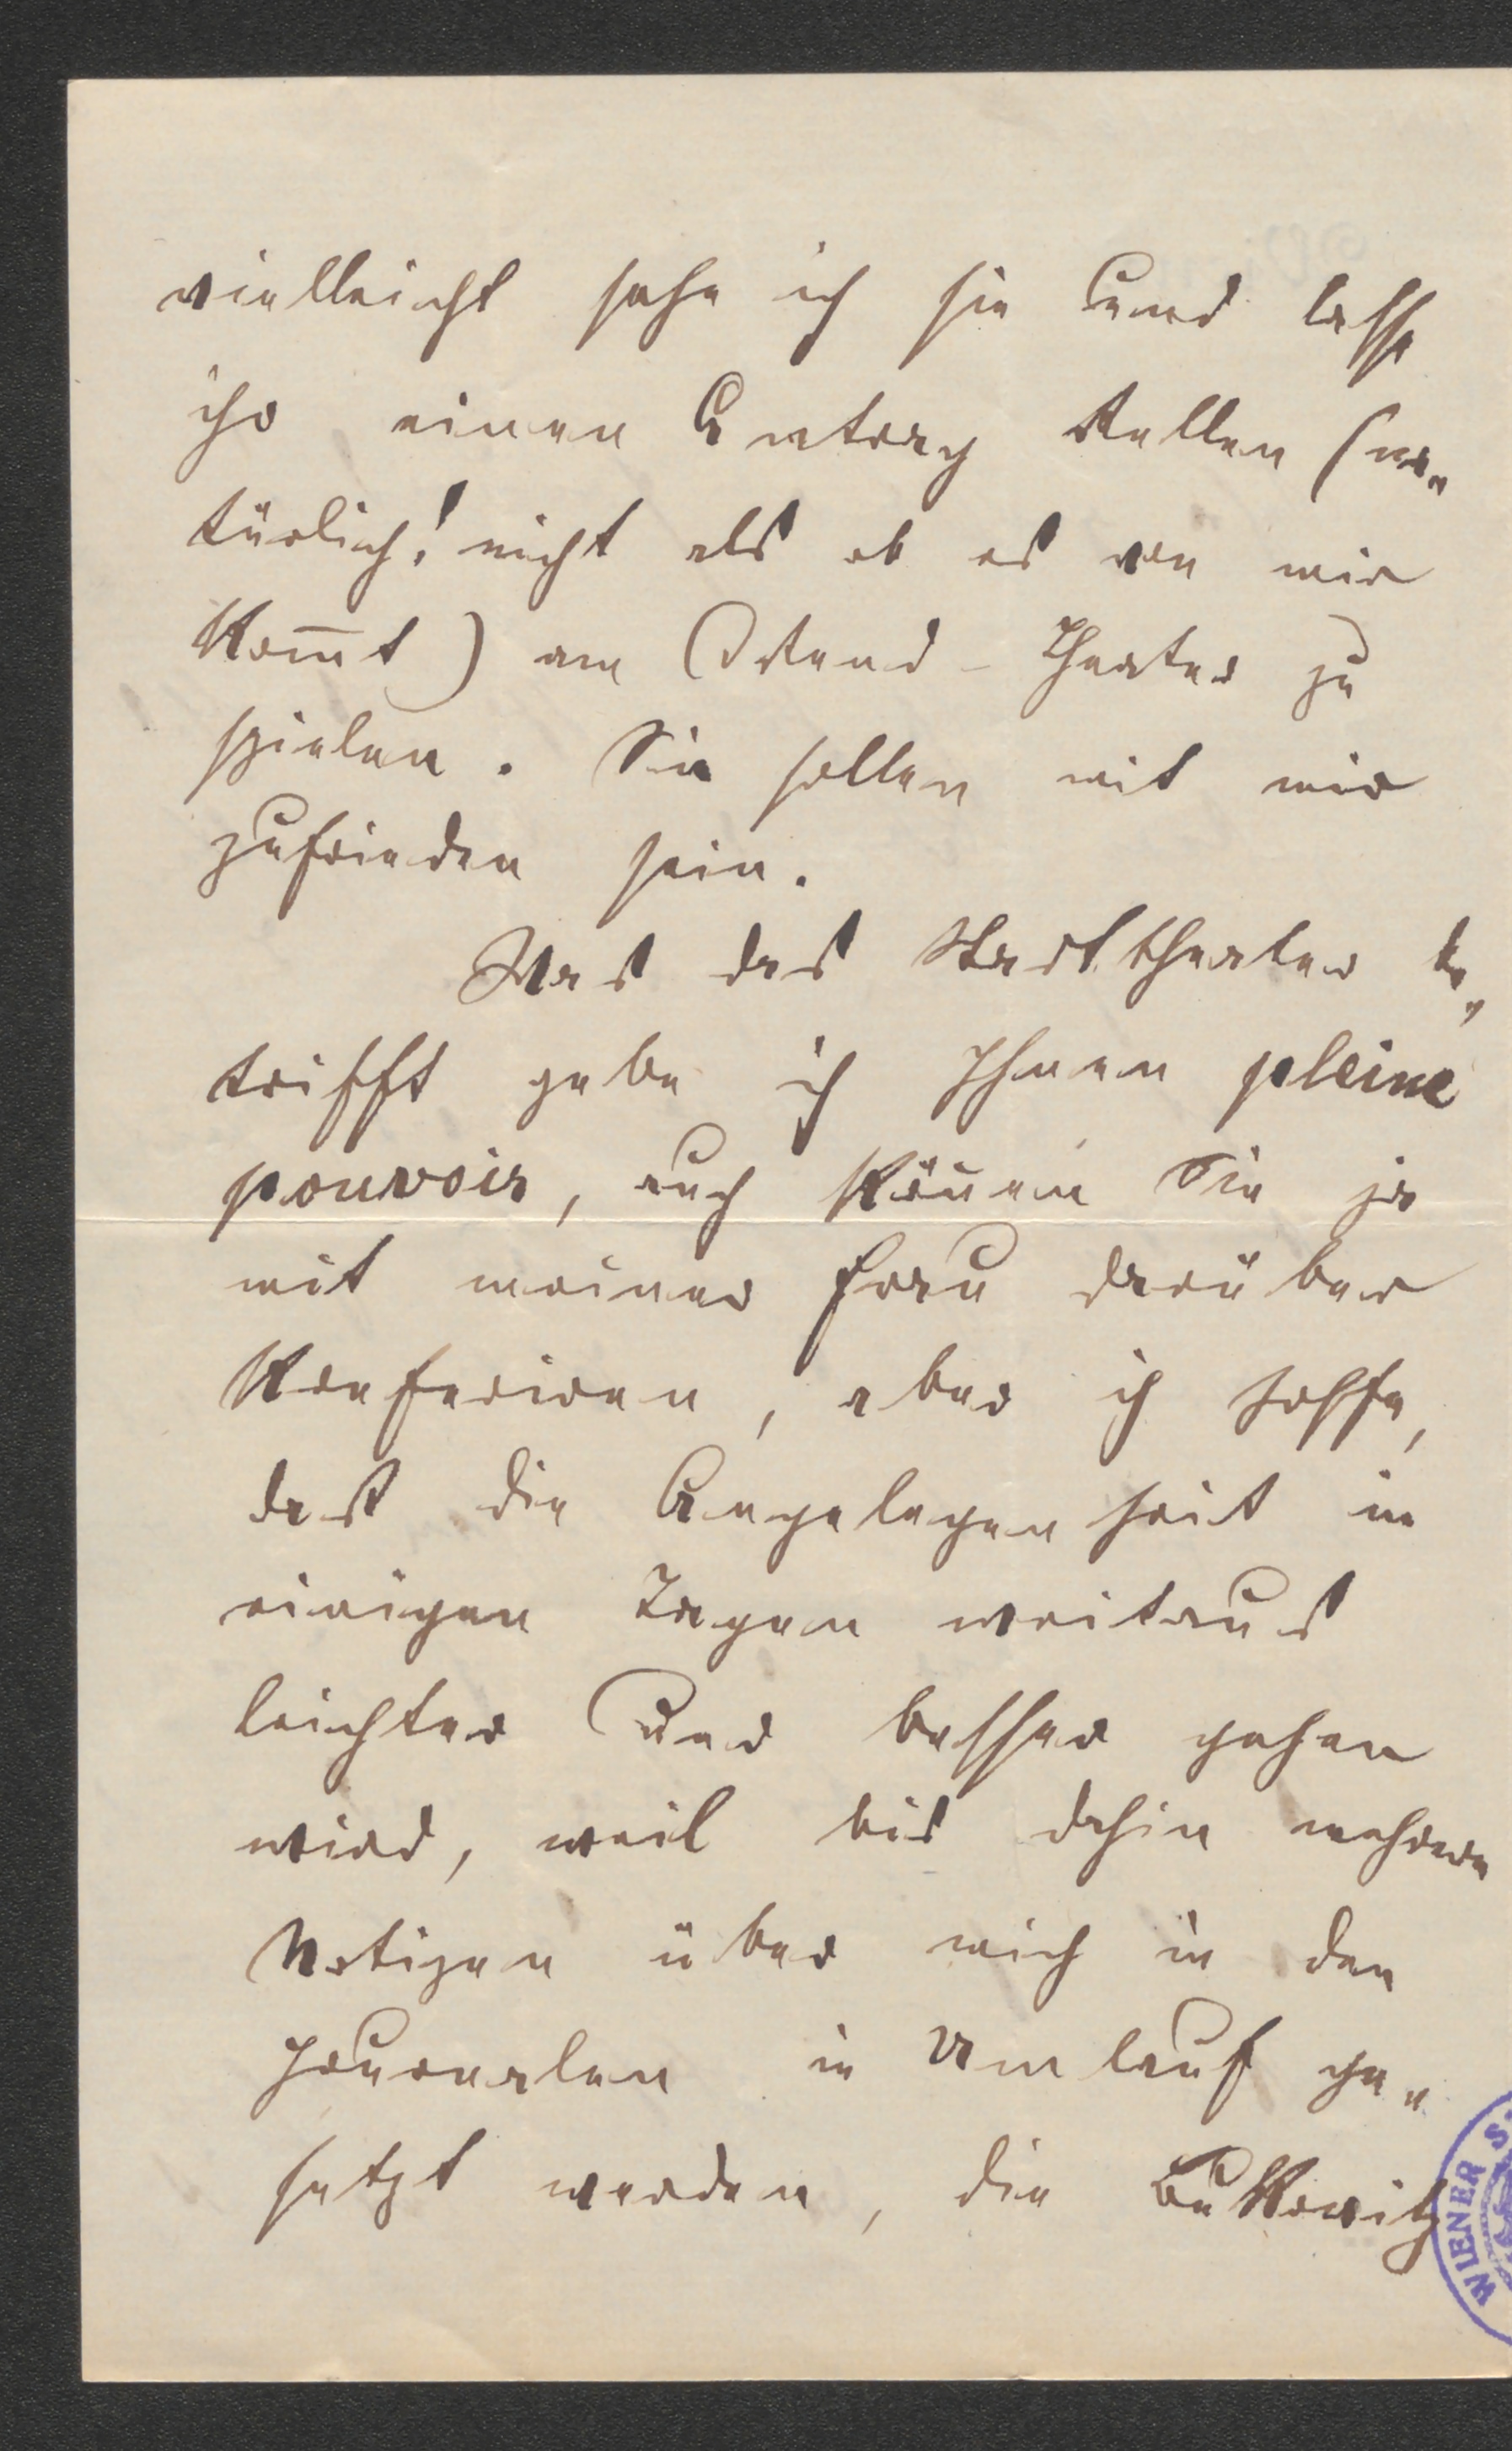 vielleicht sehe ich sie und lasse
ihr einen Antrag stellen (na„
türlich! nicht als ob es von mir
kom̅t) am Ostend-Theater zu
spielen. Sie sollen mit mir
zufrieden sein.
Was das Stadttheater be„
trifft gebe ich Ihnen pleine
pouvoir, auch kön̅en Sie ja
mit meiner Frau darüber
konferiren, aber ich hoffe,
daß die Angelegenheit in
einigen Tagen weitaus
leichter und besser gehen
wird, weil bis dahin mehrere
Notizen über mich in den
Journalen in Umlauf ge„
setzt werden, die Bukowitz
WIENER S